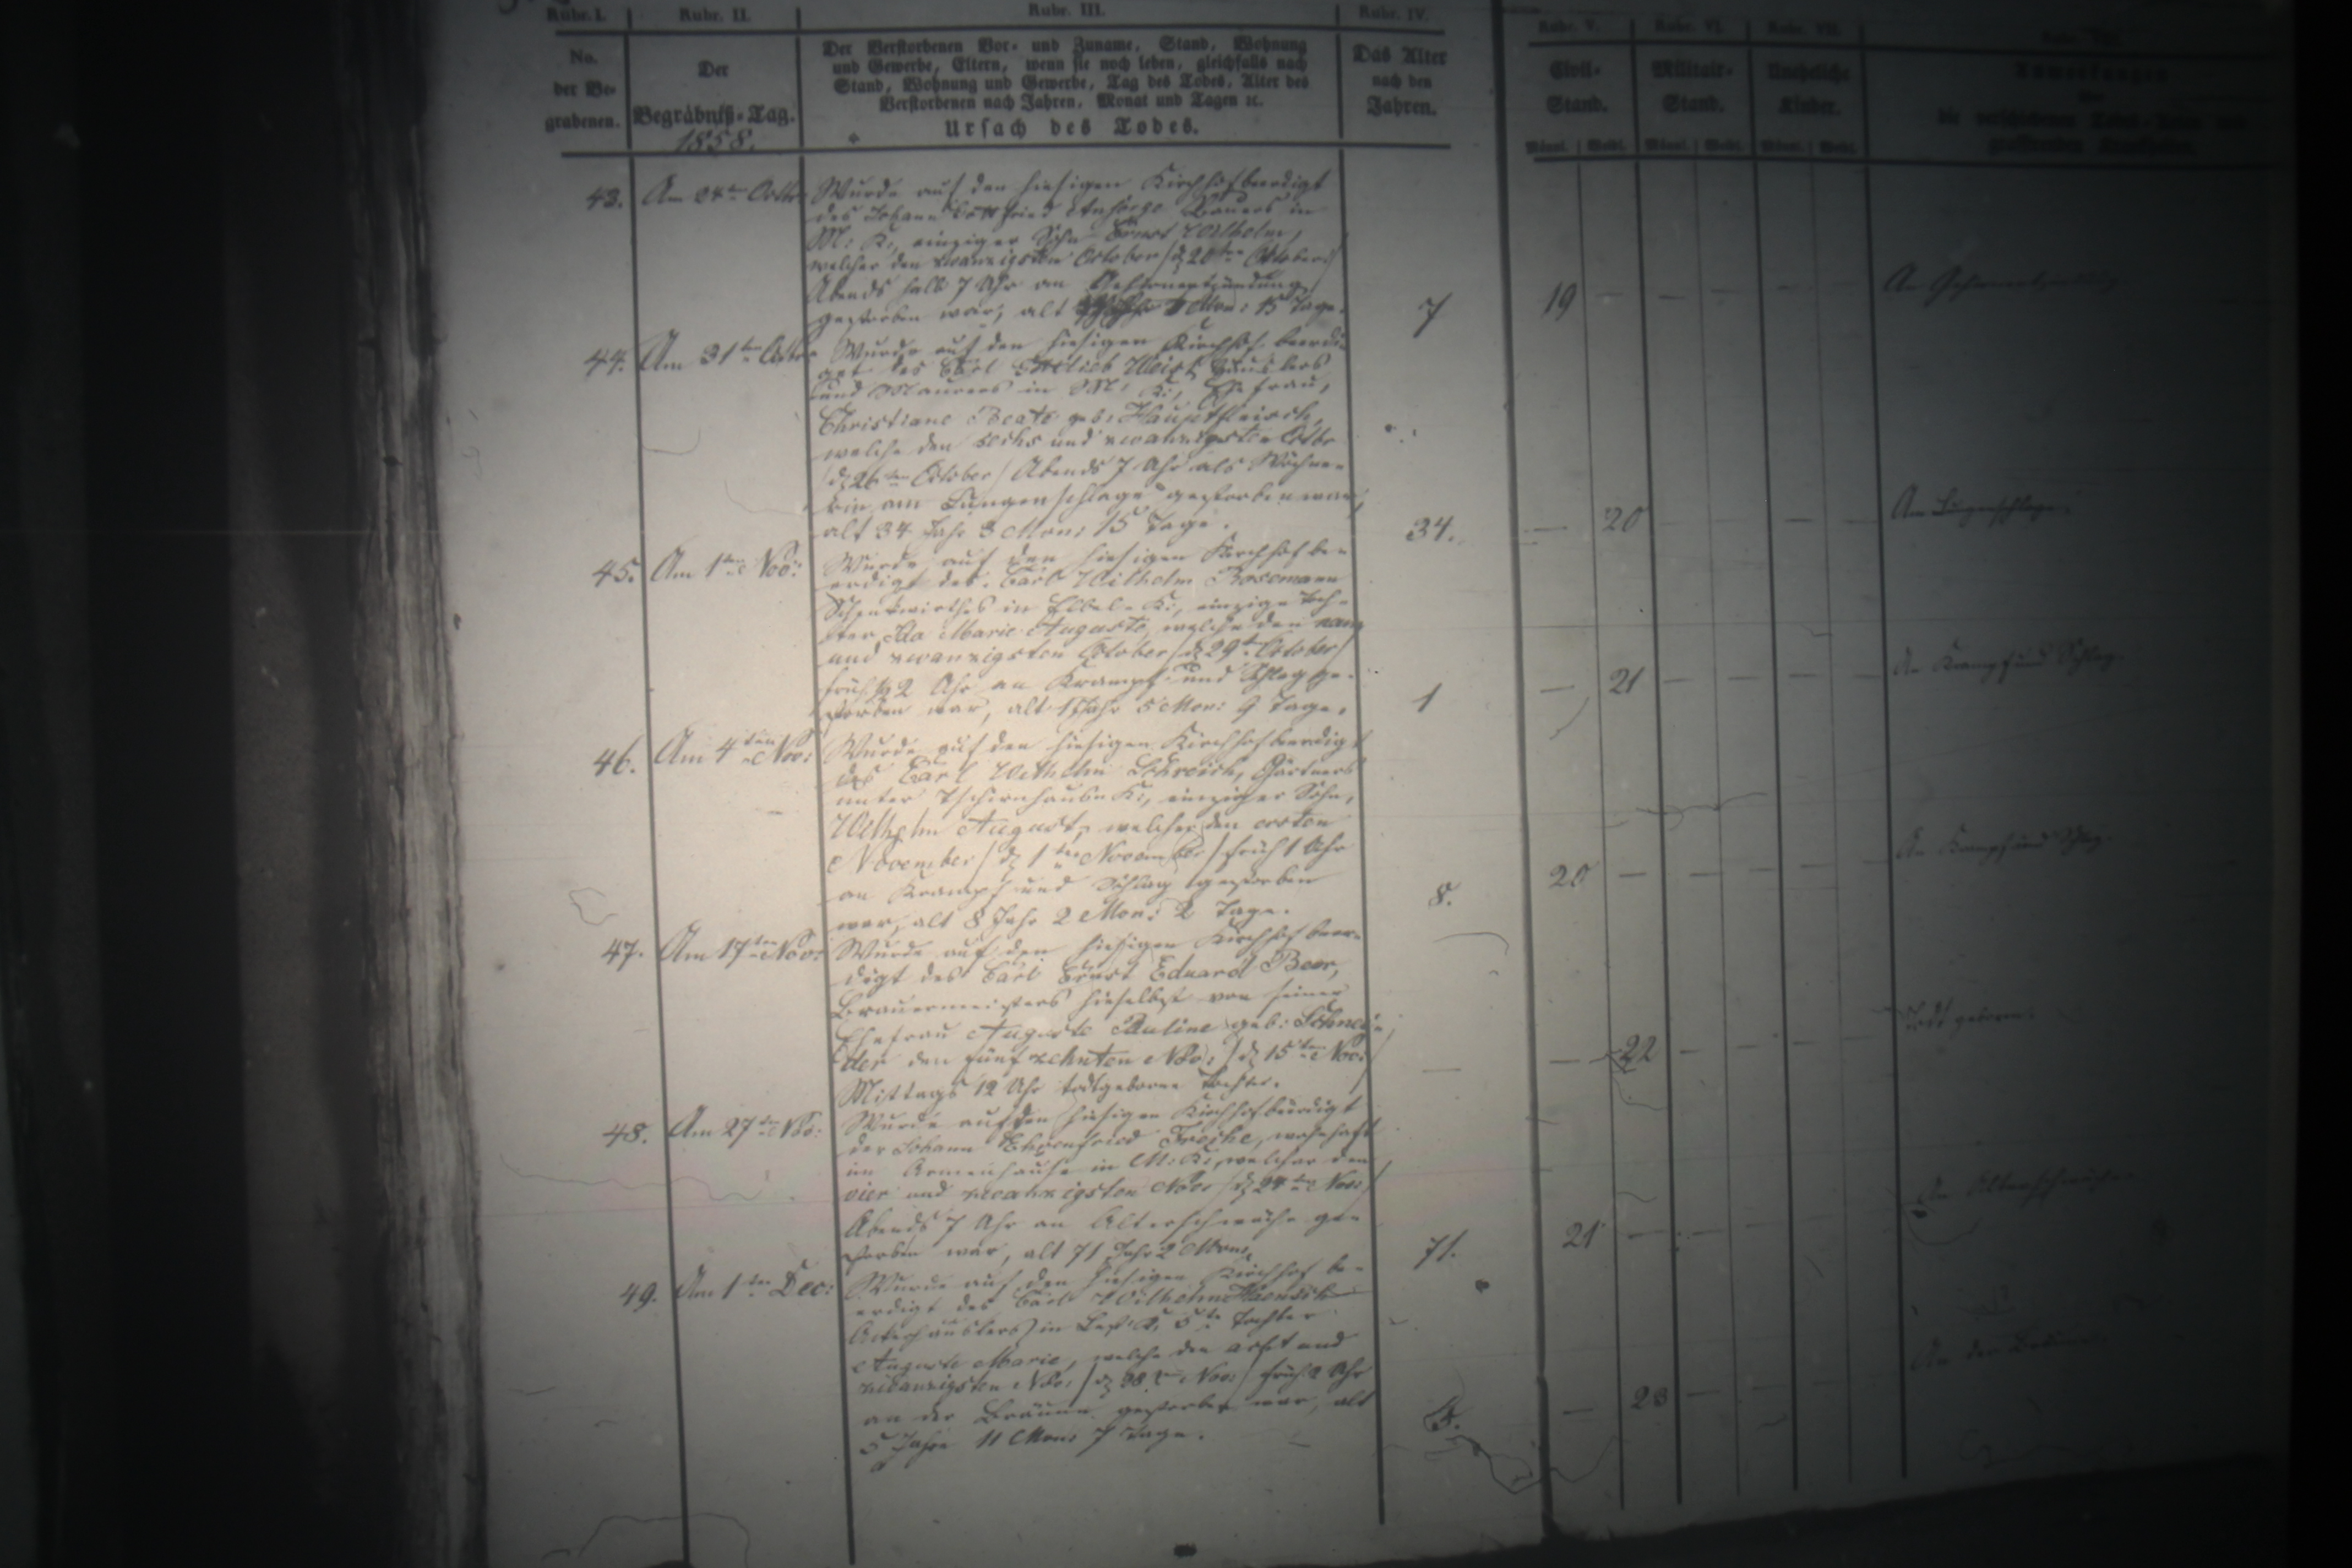 Rubr. I. Rubr. II. Rubr. III. Rubr. IV. Rubr. V. Rubr. VI. Rubr. VII.
No. der Be- grabenen.
Der Begräbniß-Tag.
1858.
Der Verstorbenen Vor- und Zuname, Stand, Wohnung
und Gewerbe, Eltern, wenn sie noch leben, gleichfalls nach
Stand, Wohnung und Gewerbe, Tag des Todes, Alter des
Verstorbenen nach Jahren, Monat und Tagen ꝛc.
Ursach des Todes.
Das Alter nach den Jahren.
Civil- Stand.
Militair- Stand.
Uneheliche Kinder.
Männl. Weibl. Männl. Weibl. Männl. Weibl.
43. Am 24ten Octbr: Wurde auf den hiesigen Kirchhof beerdigt
des Johann Gottfried Anhörge Bauers in
M: K:, einziger Sohn Ernst Wilhelm,
welcher den zwanzigsten October /d. 20ten October/
Abends halb 7 Uhr an Gehirnentzündung
gestorben war, alt Mon: 15 Tage. 7 19 — — — — —
44. Am 31ten Octbr. Wurde auf den hiesigen Kirchhof beerdi-
get des Carl Gottlieb Weist Häuslers
und Maurers in M: K:, Ehefrau,
Christiane Beate geb: Hauptfleisch,
welche den sechs und zwanzigsten Octbr
/d. 26ten October/ Abends 7 Uhr als Wöchne-
rin am Lungenschlage gestorben war,
alt 34 Jahr 3 Mon: 15 Tage. 34. — 20 — — — — An Lungenschlage.
45. Am 1ten Nov: Wurde auf den hiesigen Kirchhof be-
erdigt des Carl Wilhelm Rosemann
Schenkwirthes in Elbel-K:, einzige Toch-
ter, Ida Marie Auguste, welche den neun
und zwanzigsten October /d. 29ten October/
früh 2 Uhr an Krampf und Schlag ge-
storben war, alt 1 Jahr 5 Mon: 9 Tage. 1 — 21 — — — — An Krampf und Schlag.
46. Am 4ten Nov: Wurde auf den hiesigen Kirchhof beerdigt
des Carl Wilhelm Gärtners
unter Tschirnhaus K:, einziger Sohn,
Wilhelm August, welcher den ersten
November /d. 1ten November/ früh 1 Uhr
an Krampf und Schlag gestorben
war, alt 8 Jahr 2 Mon: 2 Tage. 8. 20 — — — — — An Krampf und Schlag.
47. Am 17ten Nov: Wurde auf den hiesigen Kirchhof beer-
digt des Carl Ernst Eduard Beer,
Brauermeisters hieselbst von seiner
Ehefrau Auguste Pauline geb: Schnei-
der den fünfzehnten Nov: /d. 15ten Nov:/
Mittags 12 Uhr todtgeborne Tochter. — — 22 — — — — Todt geboren.
48. Am 27ten Nov: Wurde auf den hiesigen Kirchhof beerdigt
der Johann Ehrenfried Fre<br>wohnhaft
im Armenhause in M: K:, welcher den
vier und zwanzigsten Nov: /d. 24ten Nov:/
Abends 7 Uhr an Altersschwäche ge-
storben war, alt 71 Jahr 2 Mon: 71. 21 — — — — — An Altersschwäche.
49. Am 1ten Dec: Wurde auf den hiesigen Kirchhof be-
erdigt des Carl Wilhelm
Ackerhäuslers in K: 5te Tochter
Auguste Marie, welche den acht und
zwanzigsten Nov: /d. 28ten Nov:/ früh 2 Uhr
an der Bräune gestorben war, alt
5 Jahre 11 Mon: 7 Tage. 5. — 23 — — — — An der Bräune.